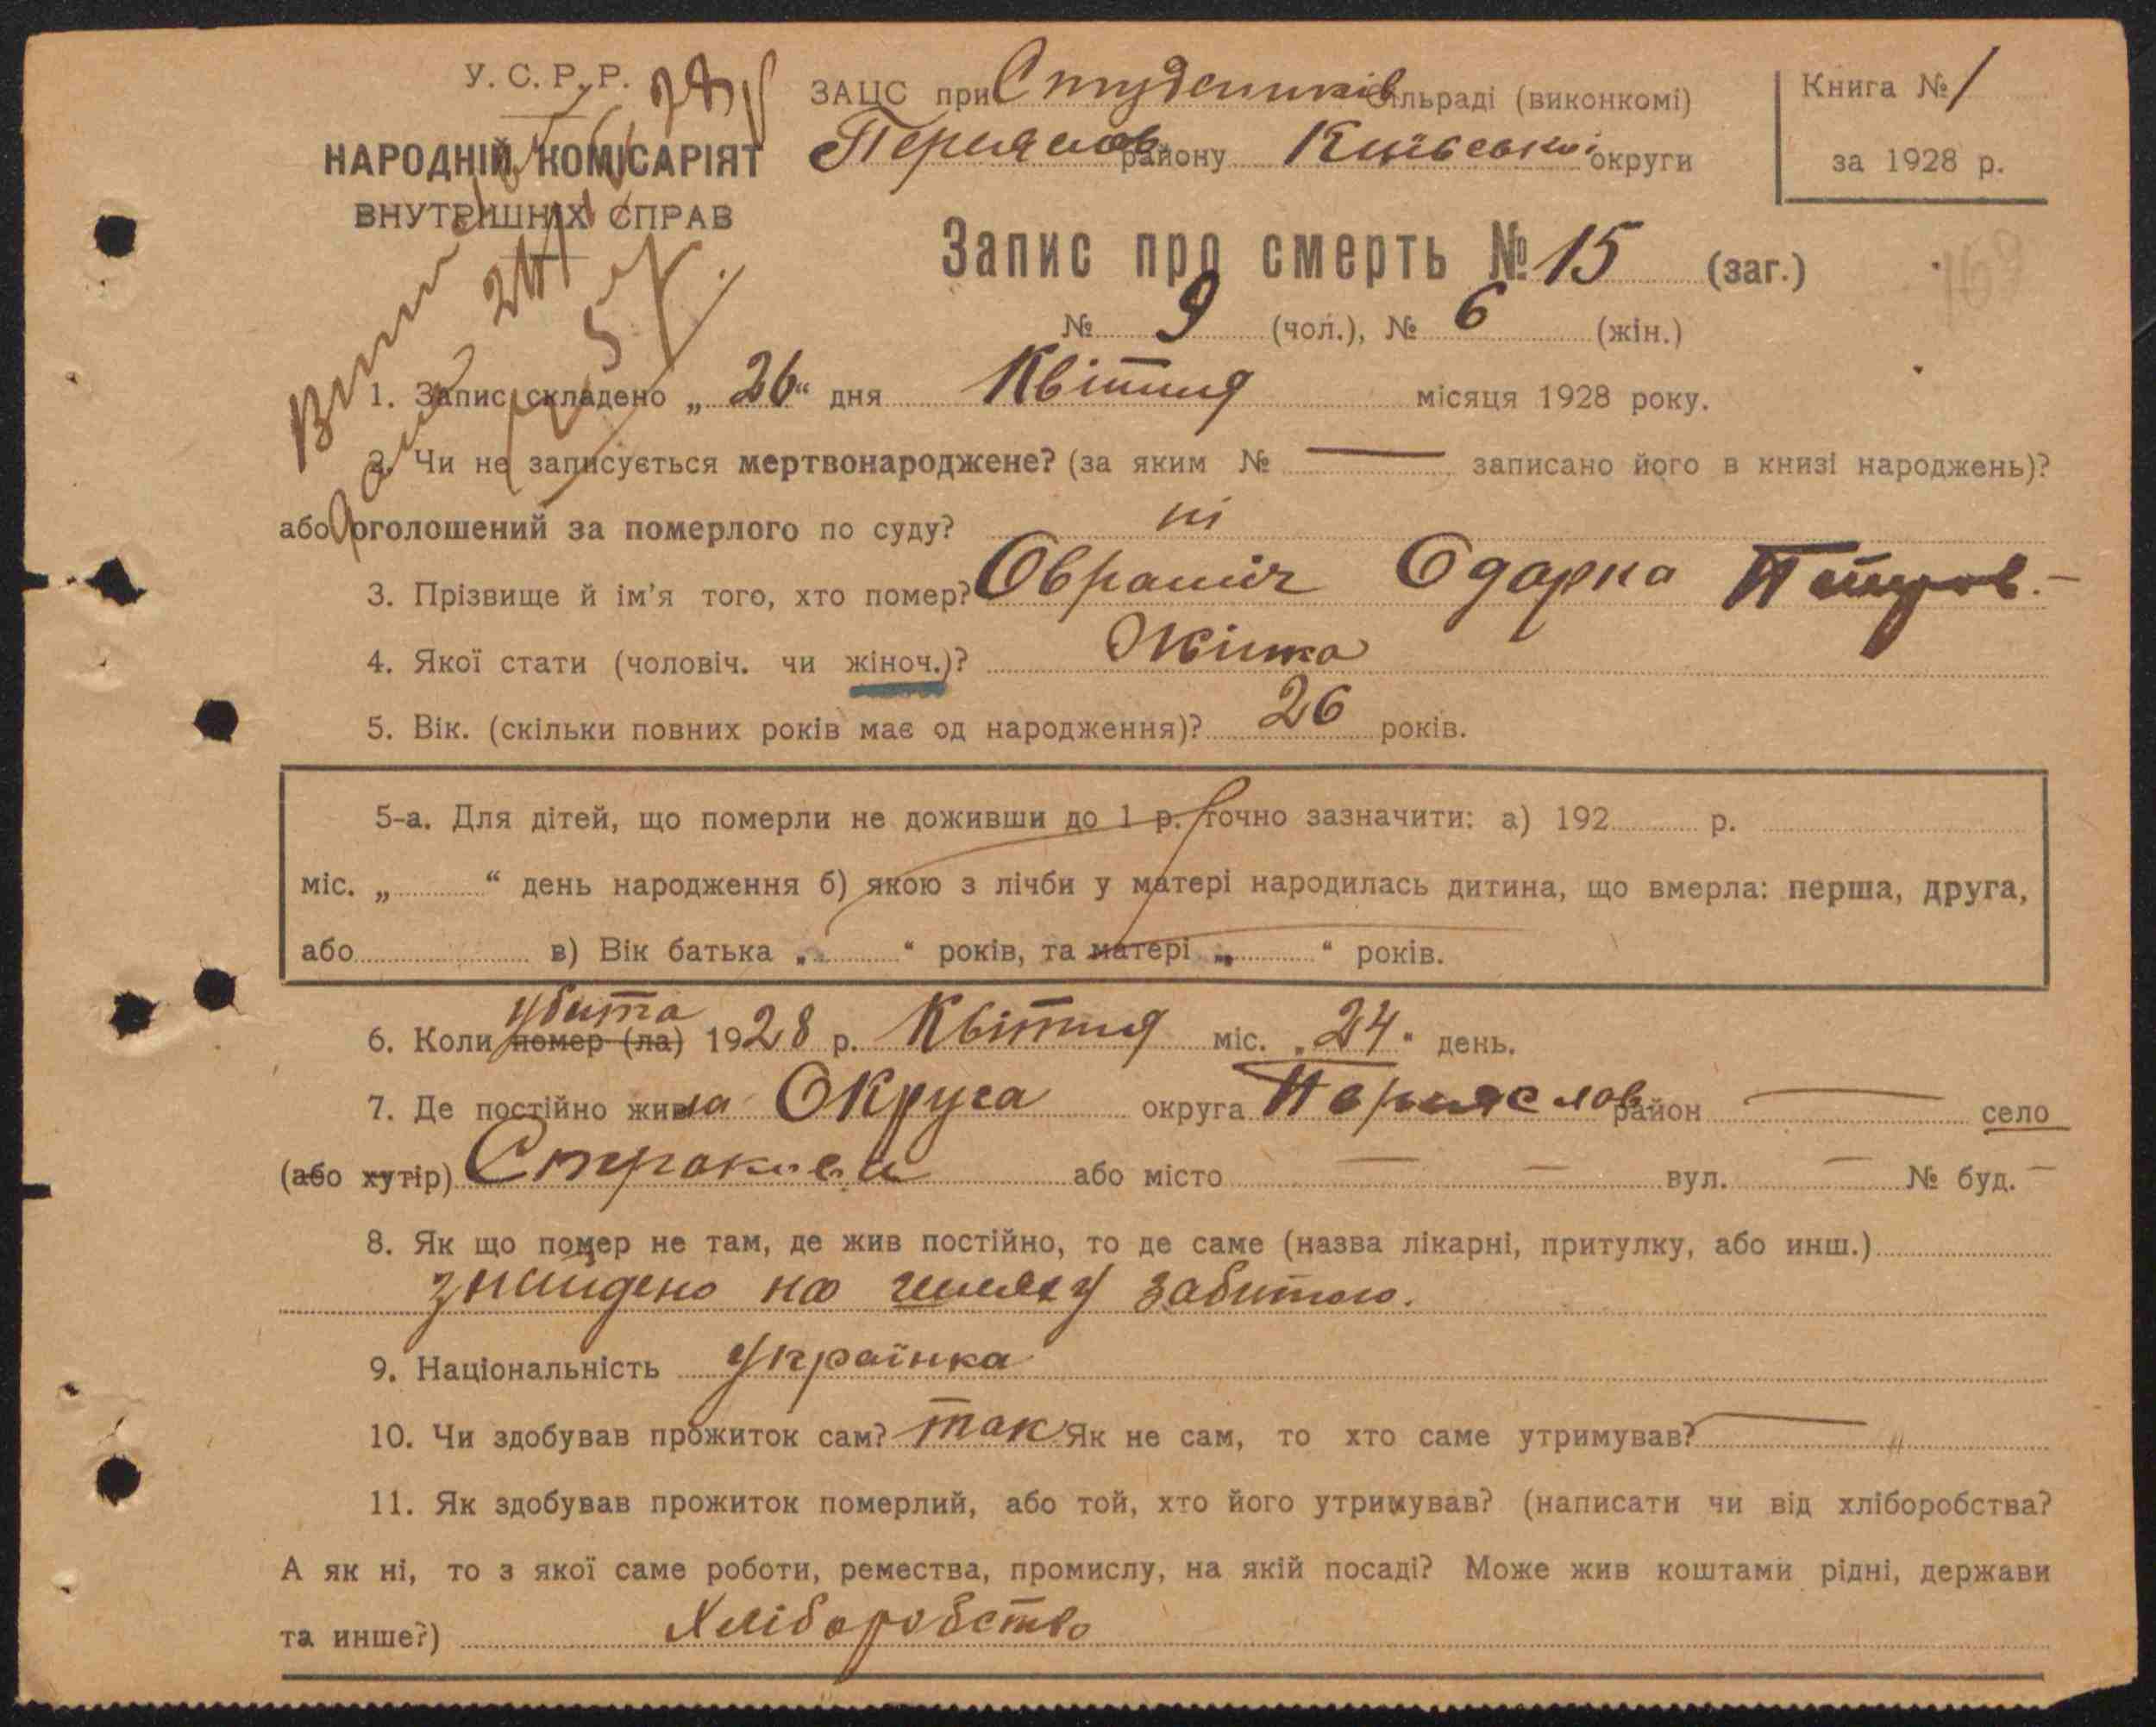 У. С. Р. Р.
НАРОДНІЙ КОМІСАРІЯТ
ВНУТРІШНІХ СПРАВ
ЗАЦС при Студеників сільраді (виконкомі)
Переяслов району Київської округи
Книга № 1
за 1928 р.
Запис про смерть № 15 (заг.)
№ 9 (чол.), № 6 (жін.)
1. Запис складено „ 26 “ дня Квітня місяця 1928 року.
2. Чи не записується мертвонароджене? (за яким № — записано його в книзі народжень)?
або оголошений за померлого по суду? ні
3. Прізвище й ім'я того, хто помер? Одарка Петров.
4. Якої стати (чоловіч. чи жіноч.)? Жінка
5. Вік. (скільки повних років має од народження)? 26 років.
5-а. Для дітей, що померли не доживши до 1 р. точно зазначити: а) 192 р.
міс. „ “ день народження б) якою з лічби у матері народилась дитина, що вмерла: перша, друга,
або в) Вік батька „ “ років, та матері „ “ років.
убита
6. Коли помер (ла) 1928 р. Квітня міс. „ 24 “ день.
7. Де постійно жила Округа округа Переяслов район — село
(або хутір) або місто — — вул. — № буд. —
8. Як що помер не там, де жив постійно, то де саме (назва лікарні, притулку, або инш.)
знайдено на шляху забитою.
9. Національність Українка
10. Чи здобував прожиток сам? так Як не сам, то хто саме утримував? —
11. Як здобував прожиток померлий, або той, хто його утримував? (написати чи від хліборобства?
А як ні, то з якої саме роботи, ремества, промислу, на якій посаді? Може жив коштами рідні, держави
та инше?) Хліборобство